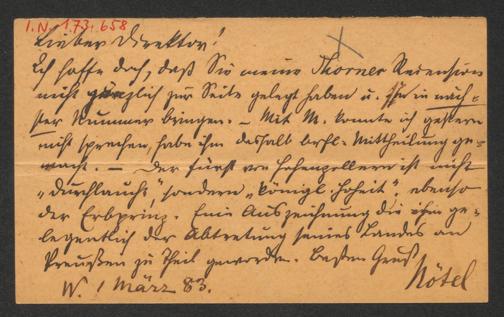 I.N. 173.658
Lieber Direktor!
Ich hoffe doch, daß Sie meine Thorner Recension
nicht gänzlich zur Seite gelegt haben u. sie in näch-
ster Nummer bringen. – Mit M. konnte ich gestern
nicht sprechen, habe ihm deshalb brfl. Mittheilung ge-
macht. – Der Fürst von Hohenzollern ist nicht
„Durchlaucht", sondern „Königl. Hoheit", ebenso
der Erbprinz. Eine Auszeichnung die ihm ge-
legentlich der Abtretung seines Landes an
Preußen zu Theil geworden. Besten Gruß
W. 1 März 83. Nötel